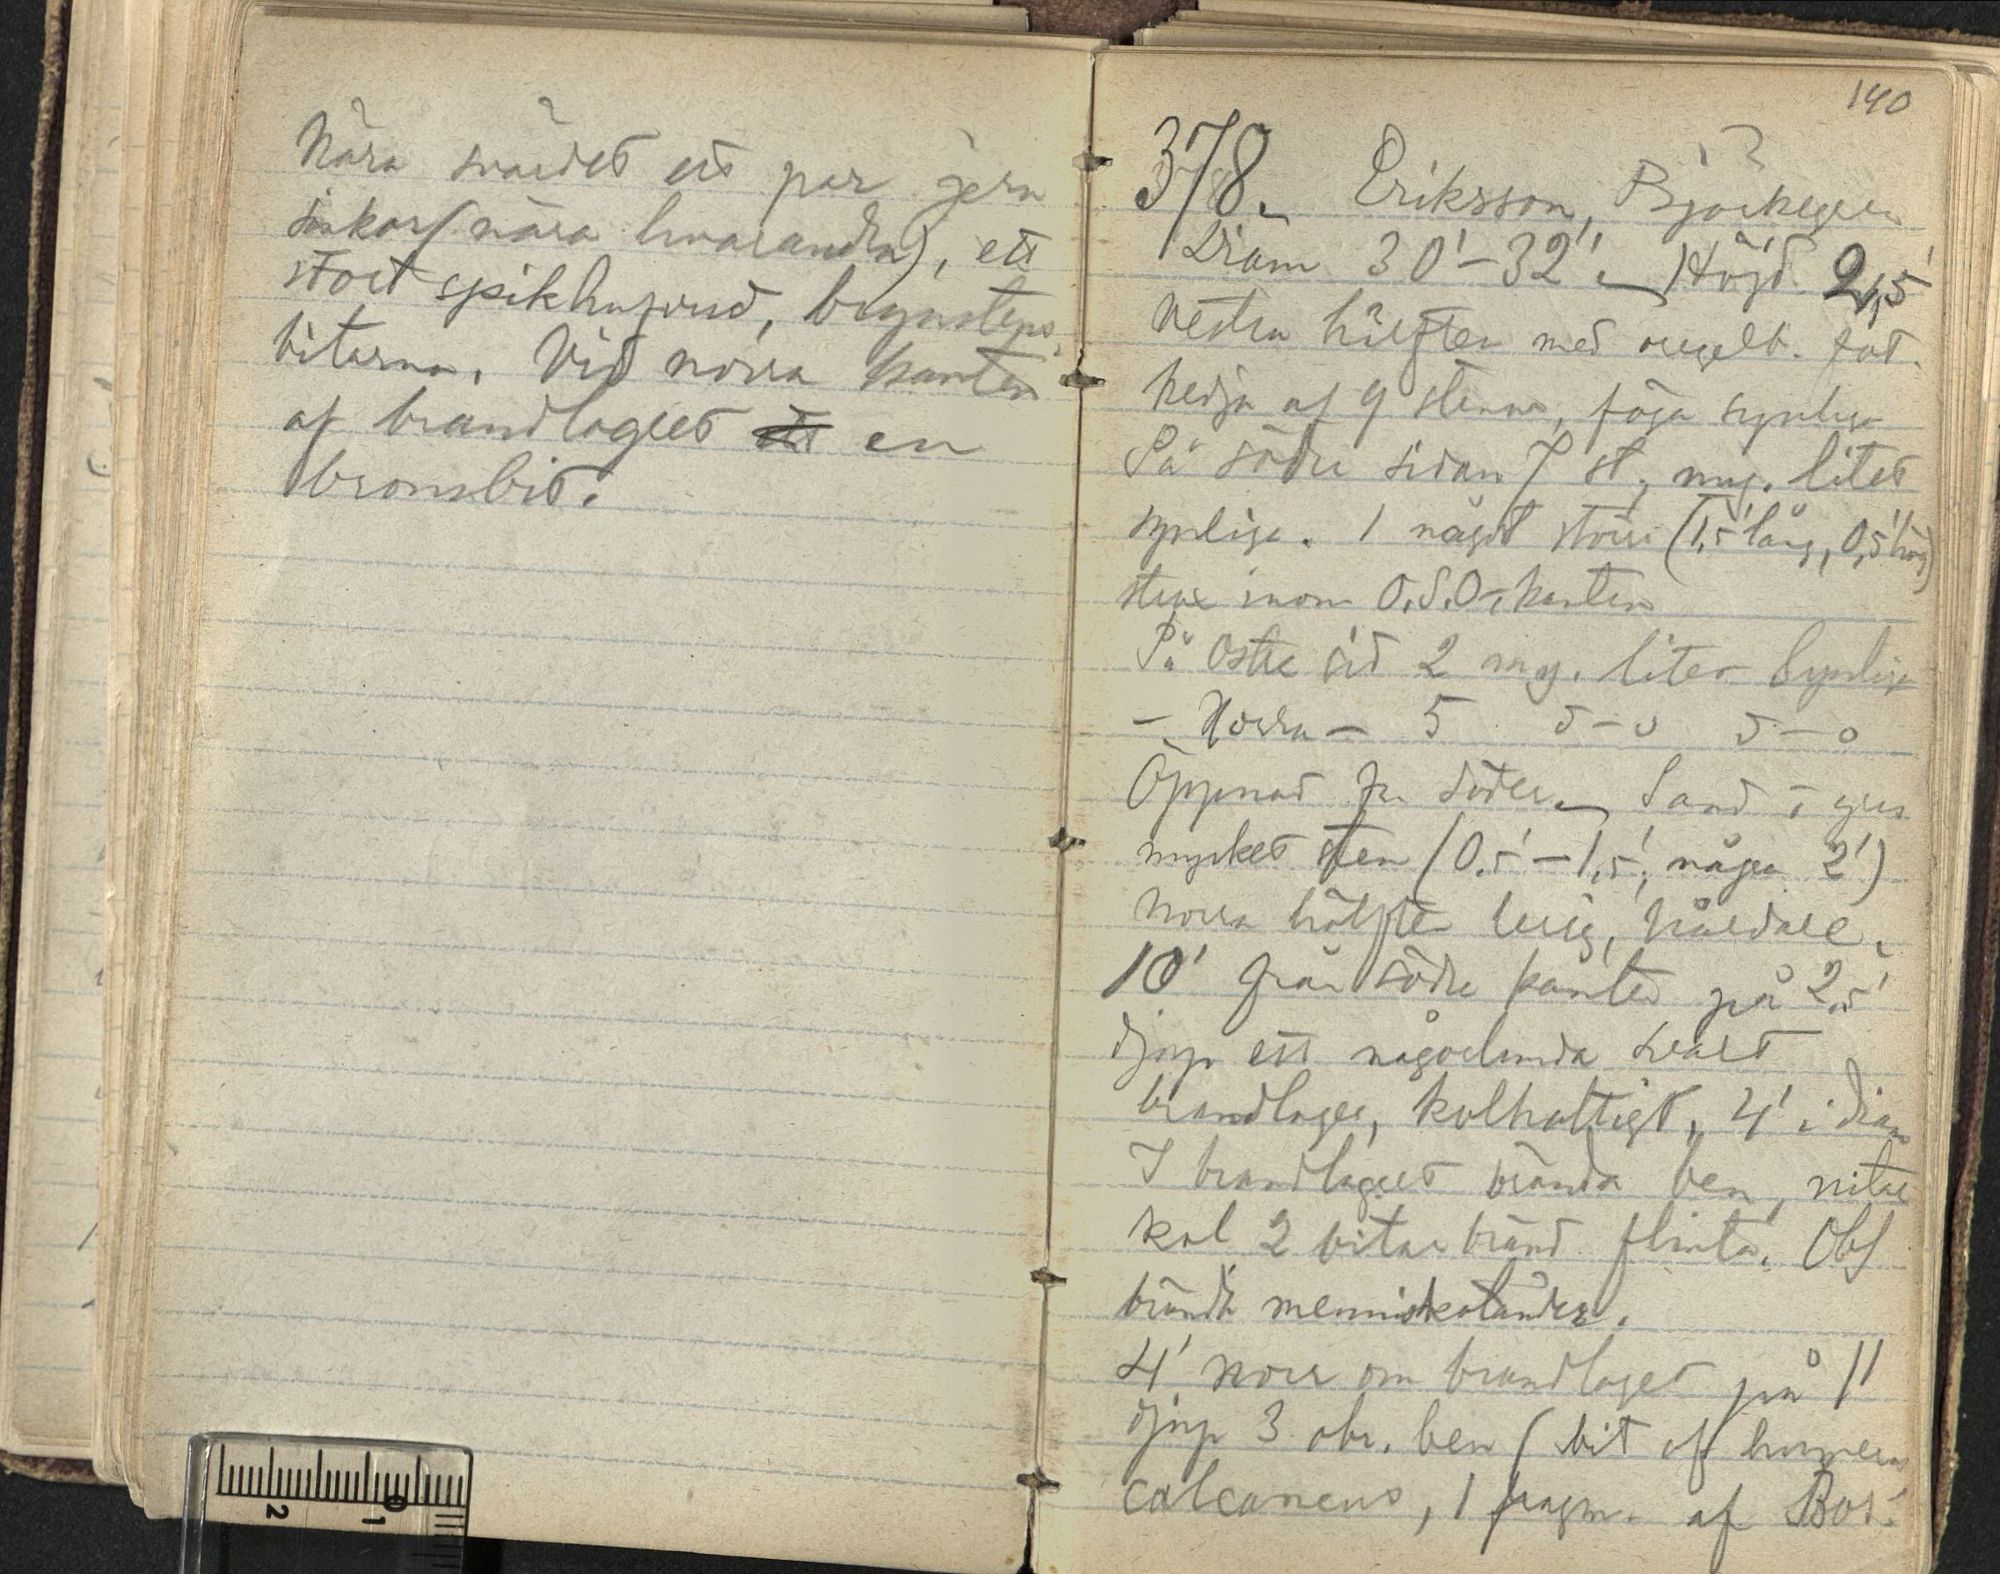 Nära svärdet ett par jern
sinkor (nära hvarandra), ett
stort spikhufvud, brynstens-
bitarna. Vid norra kanten
af brandlagret en
bronsbit.
140
378. Eriksson, Björkegren
Diam 30'-32'. Höjd 2,5'
Vestra hälften med oregelb. fot-
kedja af 9 stenar, föga synliga
På södra sidan 7 st, myc. litet
synliga. 1 något större (1,5' lång, 0,5' hög)
sten inom O.S.O-kanten
På Östra sid 2 myc. litet synliga
- Norra - 5 d-o d-o
Öppnad fr. söder. Sand o grus
mycket sten (0,5'-1,5', några 2')
Norra hälften lerig, hård
10' från södra kanten på 2,5'
djup ett någorlunda svart
brandlager, kolhaltigt, 4' i diam
I brandlagret brända ben, nitar
kol 2 bitar bränd flinta. Obs
brända menniskotänder.
4' norr om brandlagret på 1'
djup 3 obr. ben (bit af humerus
calcaneus, 1 fragm. af Bos.
2 1 0